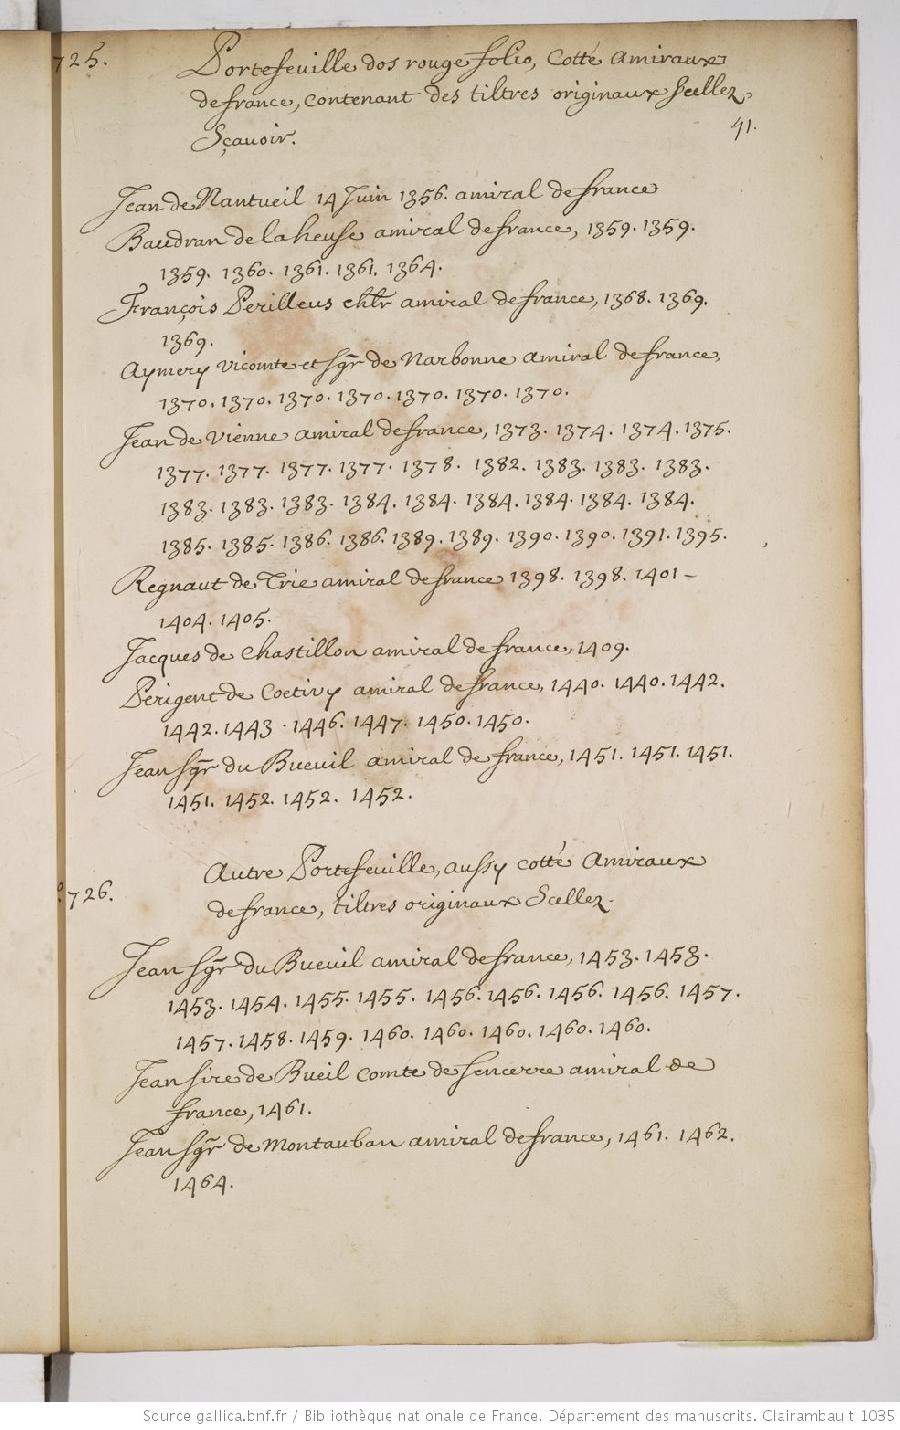 725.
Portefeuille dos rouge folio, Cotté Amiraux
de france, contenant des tiltres originaux Scellez,
Sçavoir.
41.
Jean de Nantueil 14 Juin 1356. amiral de france
Baudran de la heuse amiral de france, 1359. 1359.
1359. 1360. 1361. 1361. 1364.
François Perilleus chlr amiral de france, 1368. 1369.
1369.
Aymery Vicomte et sgr de Narbonne amiral de france,
1370. 1370. 1370. 1370. 1370. 1370. 1370.
Jean de Vienne amiral de france, 1373. 1374. 1374. 1375.
1377. 1377. 1377. 1377. 1378. 1382. 1383. 1383. 1383.
1383. 1383. 1383. 1384. 1384. 1384. 1384. 1384. 1384.
1385. 1385. 1386. 1386. 1389. 1389. 1390. 1390. 1391. 1395.
Regnaut de Trie amiral de france 1398. 1398. 1401 –
1404. 1405.
Jacques de Chastillon amiral de france, 1409.
Perigent de Coetivy amiral de france, 1440. 1440. 1442.
1442. 1443. 1446. 1447. 1450. 1450.
Jean sgr du Bueuil amiral de france, 1451. 1451. 1451.
1451. 1452. 1452. 1452.
726.
Autre Portefeuille, aussy cotté Amiraux
de france, tiltres originaux Scellez.
Jean sgr du Bueuil amiral de france, 1453. 1453.
1453. 1454. 1455. 1455. 1456. 1456. 1456. 1456. 1457.
1457. 1458. 1459. 1460. 1460. 1460. 1460. 1460.
Jean sire de Bueil comte de sencerre amiral de
france, 1461.
Jean sgr de Montauban amiral de france, 1461. 1462.
1464.
Source gallica.bnf.fr / Bibliothèque nationale de France. Département des manuscrits. Clairambault 1035